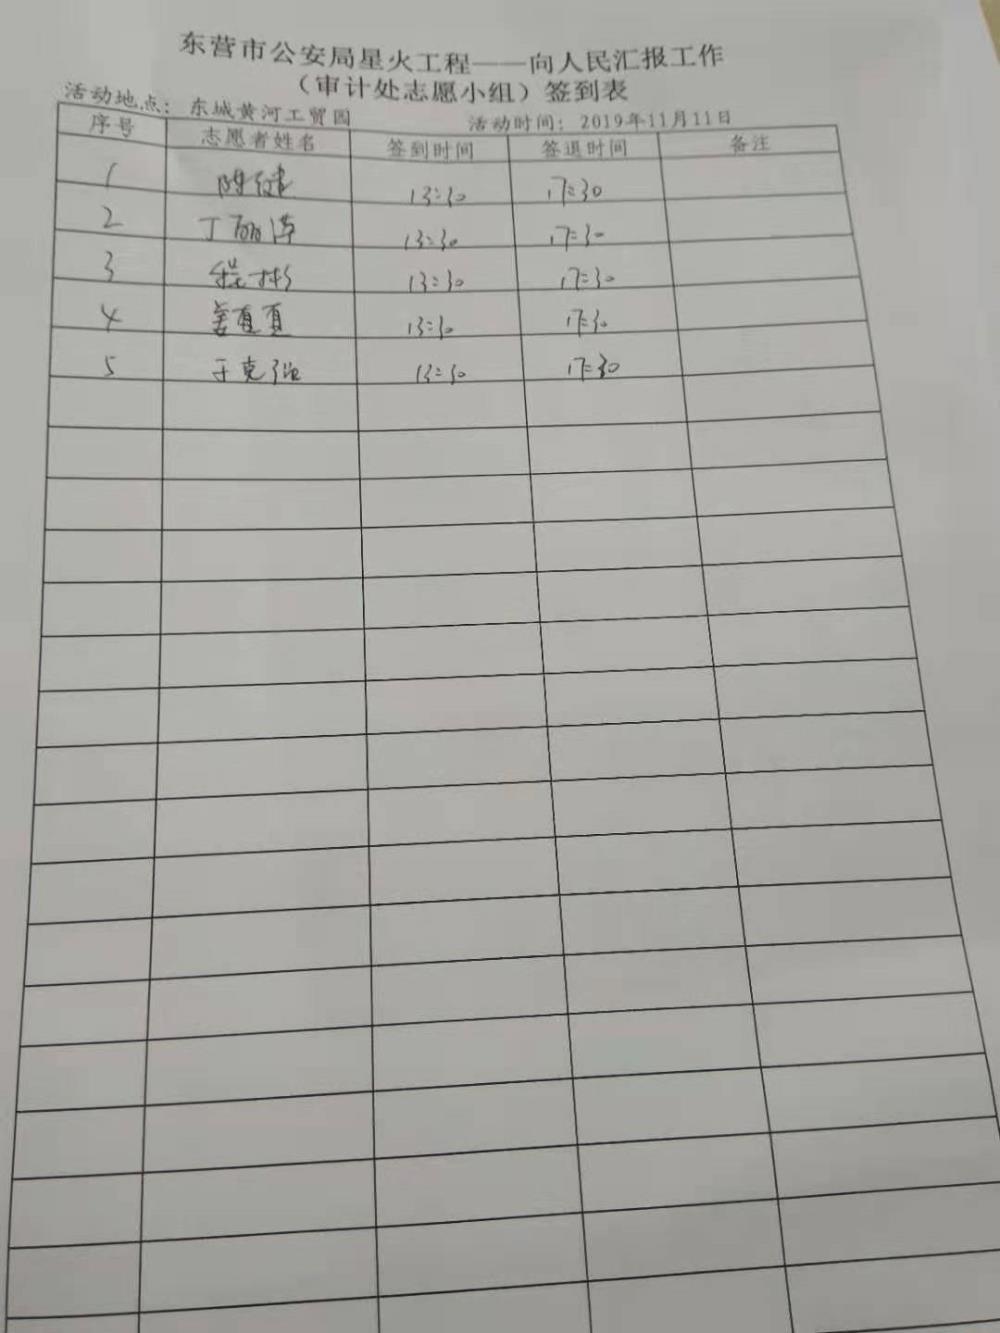 东营市公安局星火工程——向人民汇报工作
（审计处志愿小组）签到表
活动地点：东城黄河工贸园 活动时间：2019年11月11日
序号 志愿者姓名 签到时间 签退时间 备注
1 陈健 13:30 17:30
2 丁丽萍 13:30 17:30
3 程彬 13:30 17:30
4 姜直直 13:30 17:30
5 于克强 13:30 17:30